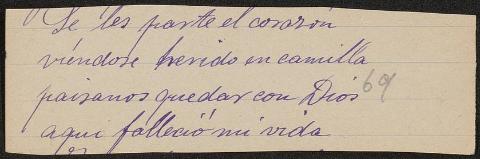 Se les parte el corazón
viéndose herido en camilla
paisanos quedar con Dios 69
aqui falleció mi vida